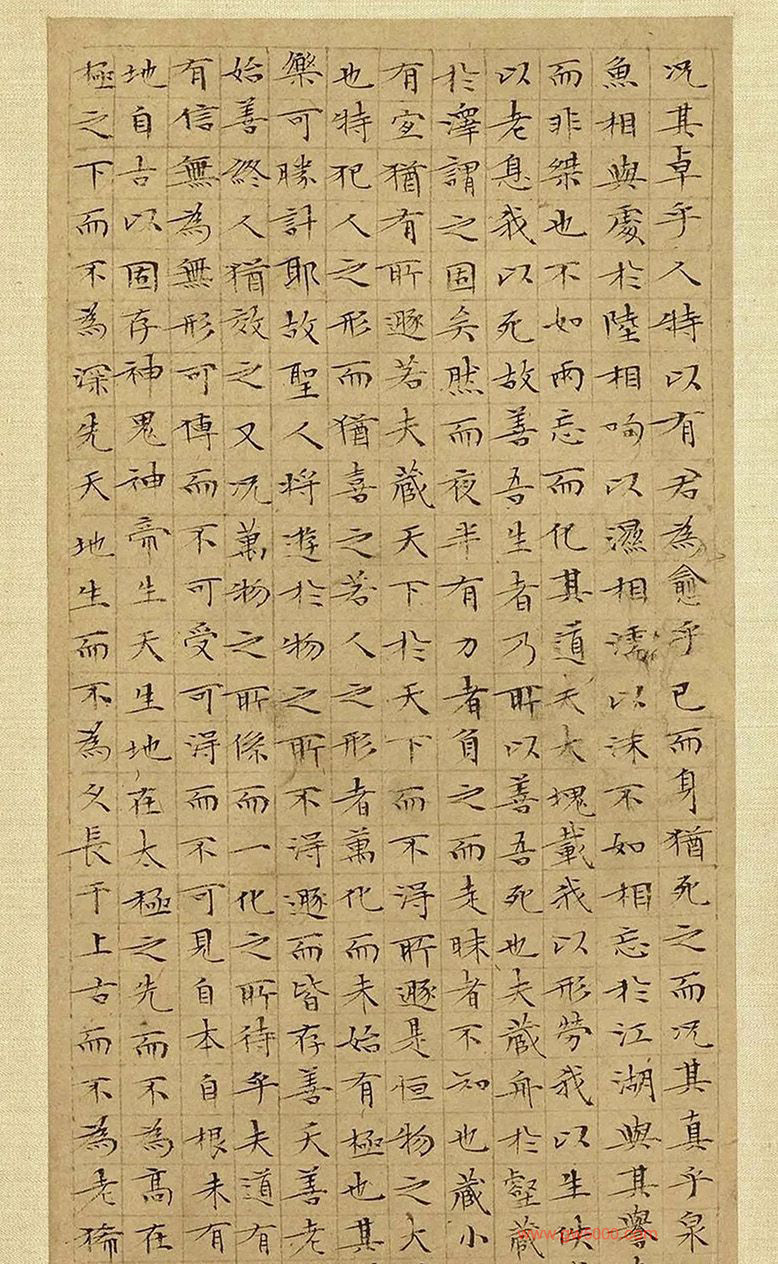 況其卓乎人特以有君為愈乎已而身猶死之而況其真乎泉
魚相與處於陸相呴以濕相濡以沫不如相忘於江湖與其譽
而非桀也不如兩忘而化其道夫大塊載我以形勞我以生佚
以老息我以死故善吾生者乃所以善吾死也夫藏舟於壑藏
於澤謂之固矣然而夜半有力者負之而走昧者不知也藏小
有宜猶有所遯若夫藏天下於天下而不得所遯是恒物之大
也特犯人之形而猶喜之若人之形者萬化而未始有極也其
樂可勝計耶故聖人將遊於物之所不得遯而皆存善夭善老
始善終人猶效之又況萬物之所係而一化之所待乎夫道有
有信無為無形可傳而不可受可得而不可見自本自根未有
地自古以固存神鬼神帝生天生地在太極之先而不為高在
極之下而不為深先天地生而不為久長于上古而不為老狶